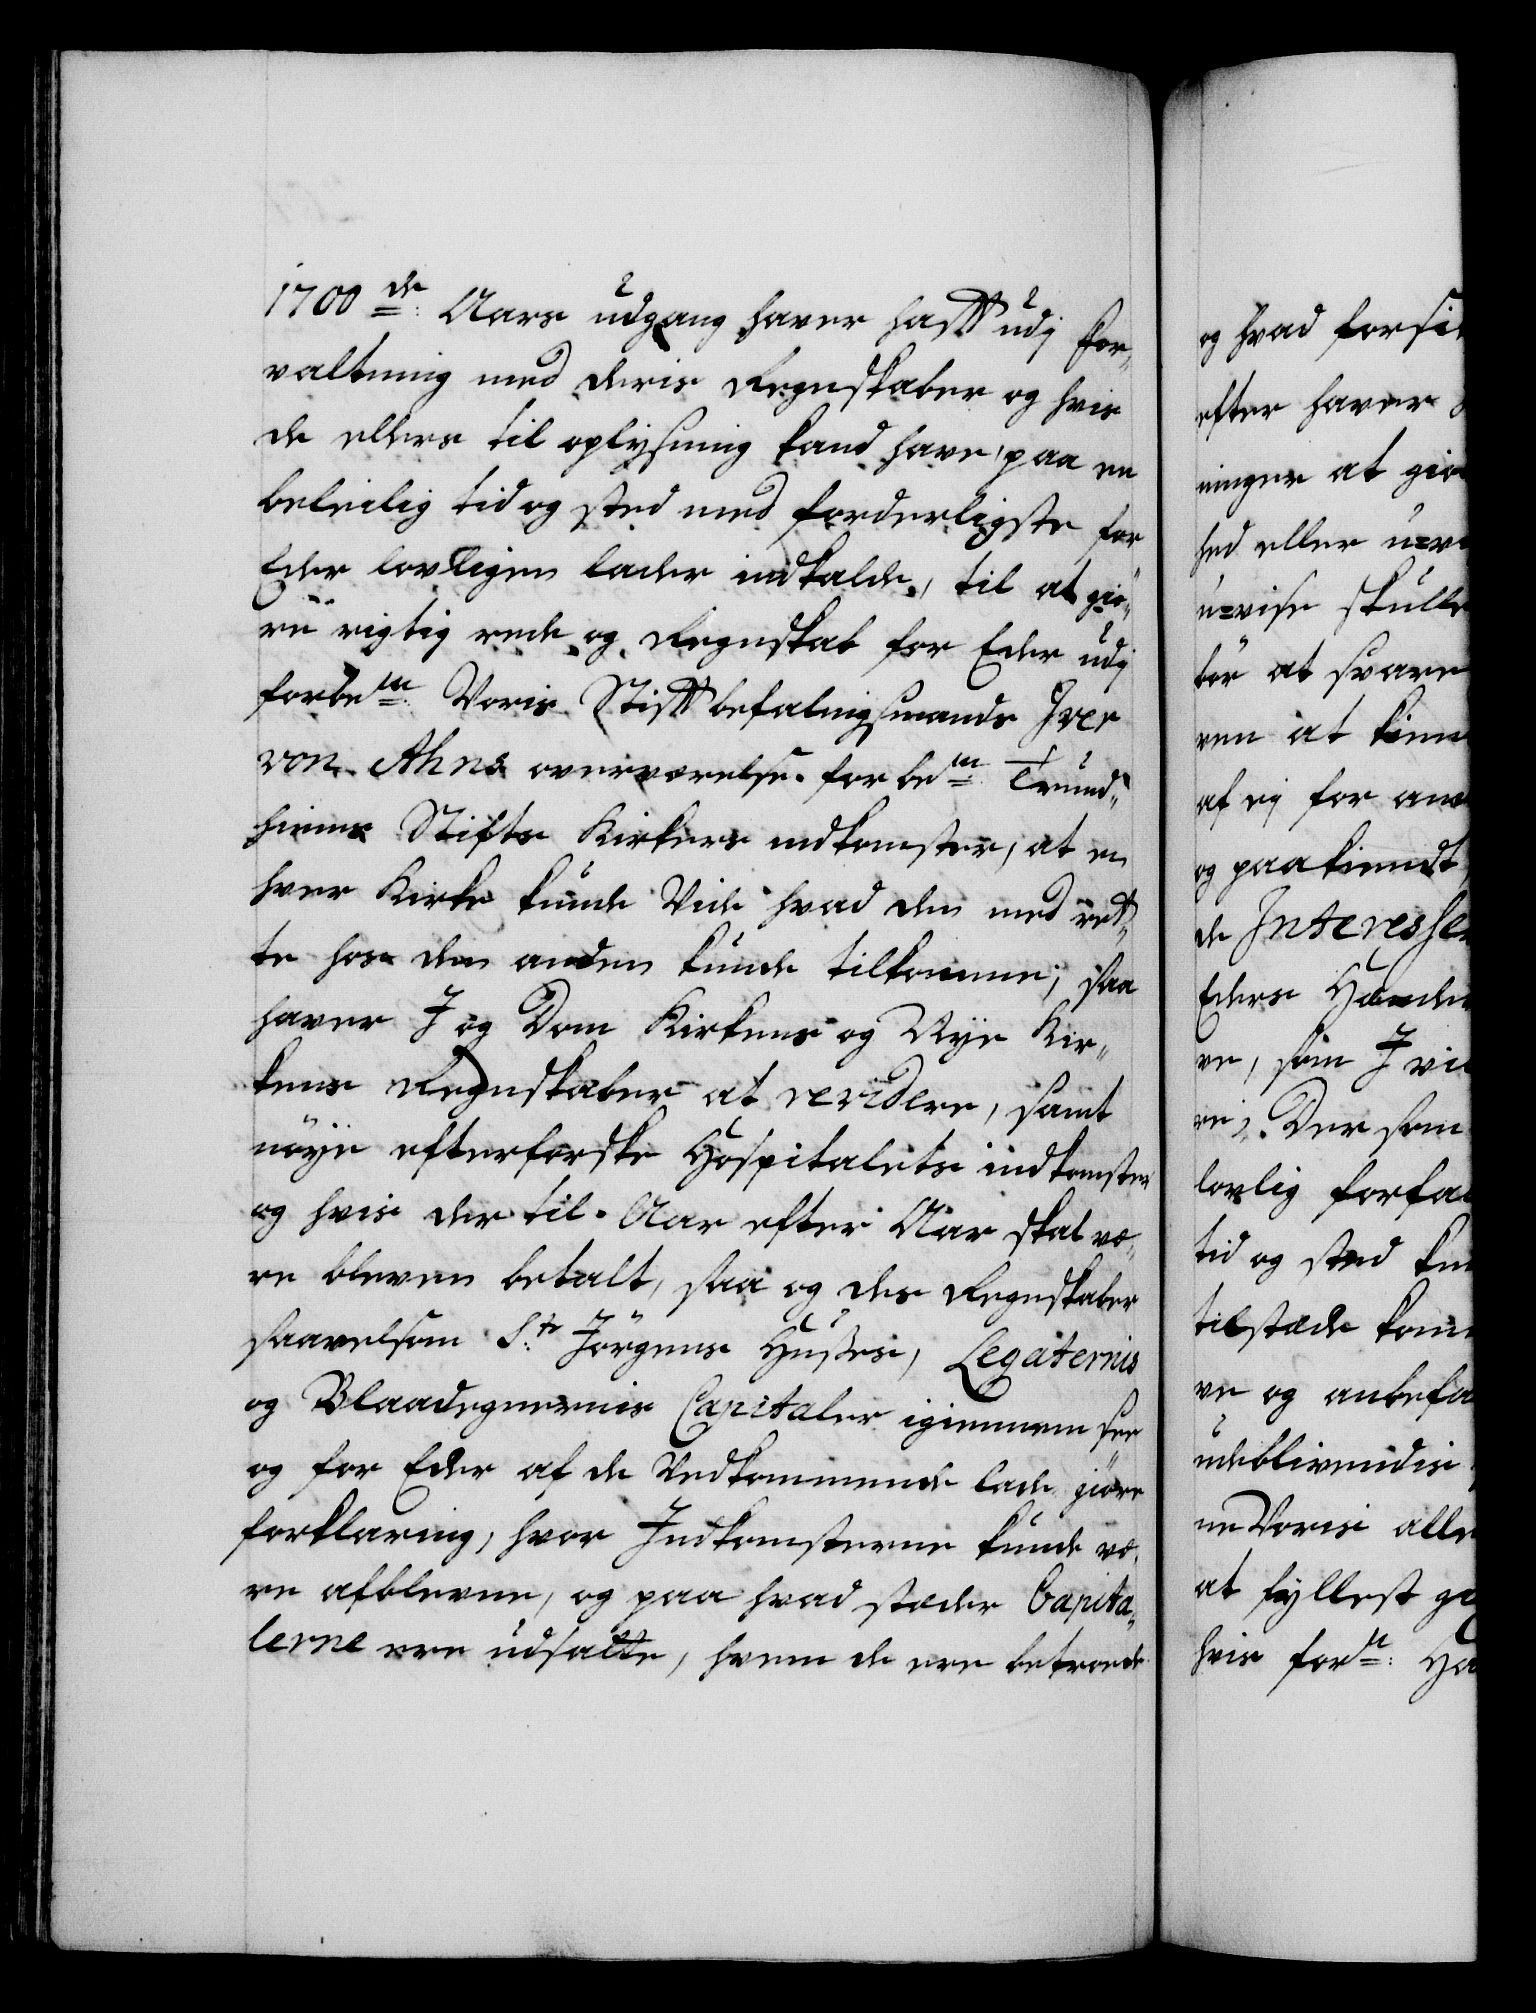 1700de Aars udgang haver hafft udj for„
valtning med deris Regnskaber og hvis
de ellers til oplysning kand have, paa en
beleilig tid og sted med forderligste for
Eder lovligen lader indkalde, til at giö„
re rigtig rede og Regnskab for Eder udj
forbem: Voris Stifftbefalingsmands Iver
von Ahns overværelse for bem: Trund„
hiems Stifts Kirkers indkomster, at en
hver Kirke kunde Vide hvad den med rett„
te hos den anden kunde tilkomme; saa
haver I og Dom Kirkens og Nye Kir„
kens Regnskaber at revidere, samt
nöye efterforske Hospitalets indkomster
og hvis der til Aar efter Aar skal væ„
re bleven betalt, saa og des Regnskaber
saavelsom St: Jörgens Huses, Legaternis
og Blaadegnernis Capitaler igiennem see
og for Eder af de Vedkommende lade giöre
forklaring, hvor Indkomsterne kunde væ„
re afblevne, og paa hvad stæder Capita„
lerne ere udsatte, hvem de ere betroede
og hvad forsi
efter haver
ninger at giö
hed eller u=v
u=vise skulle
bör at svare
ren at kien
af ej for an
og paakiendt
de Interesse
Eders Hænde
re, som I vil
re; Der som
lovlig forfa
tid og sted
tilstæde kom
ve og anbefa
udeblivendis
ne Voris aller
at fyllest g
hvis forn: Ha